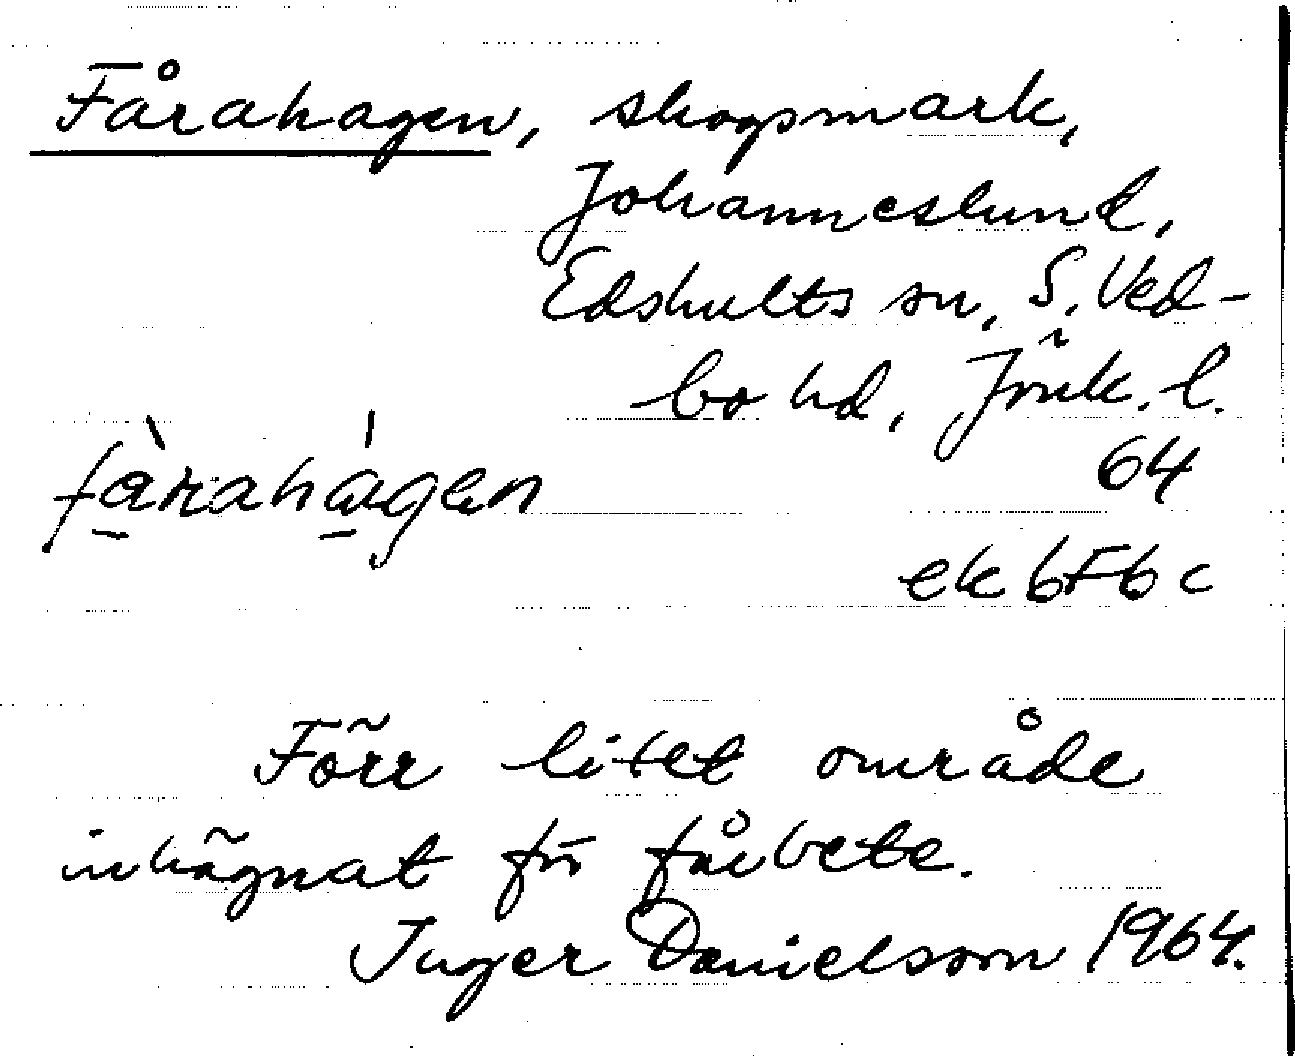 Fårahagen, skogsmark,
Johanneslund,
Edshults sn, S. Ved-
bo hd, Jönk. l.
fàrahágen
64
ek 6F6c
Förr litet område
inhägnat för fårbete.
Inger Danielsson 1964.